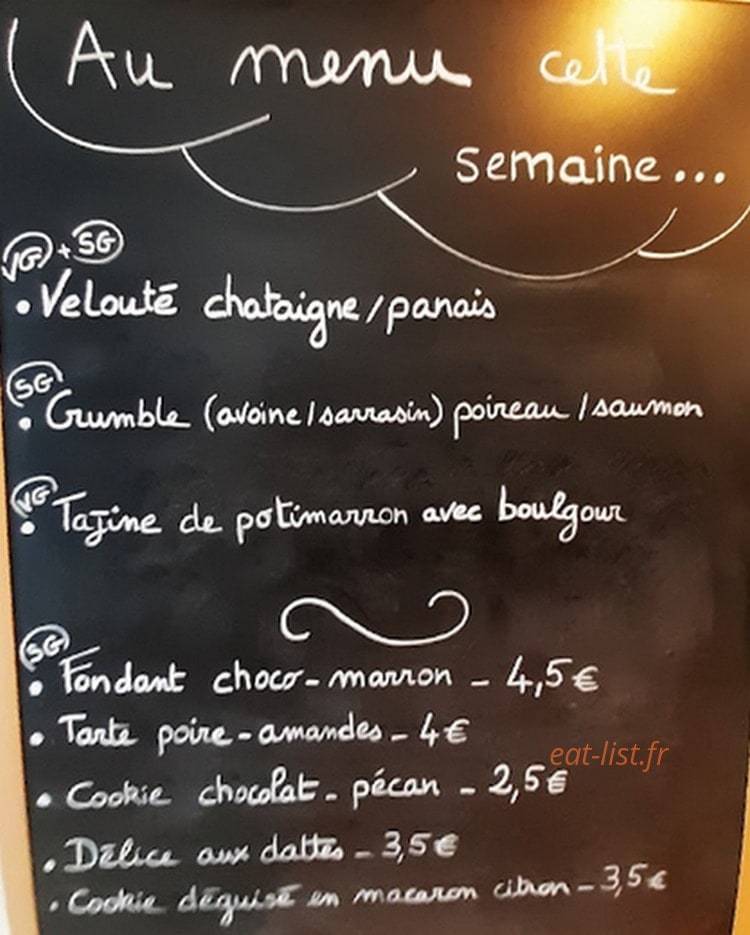 Au menu cette
semaine...
VG + SG
• Velouté chataigne/panais
SG
• Crumble (avoine/sarrasin) poireau/saumon
VG
• Tajine de potimarron avec boulgour
SG
• Fondant choco-marron - 4,5€
• Tarte poire-amandes - 4€
eat-list.fr
• Cookie chocolat - pécan - 2,5€
• Délice aux dattes - 3,5€
• Cookie déguisé en macaron citron - 3,5€